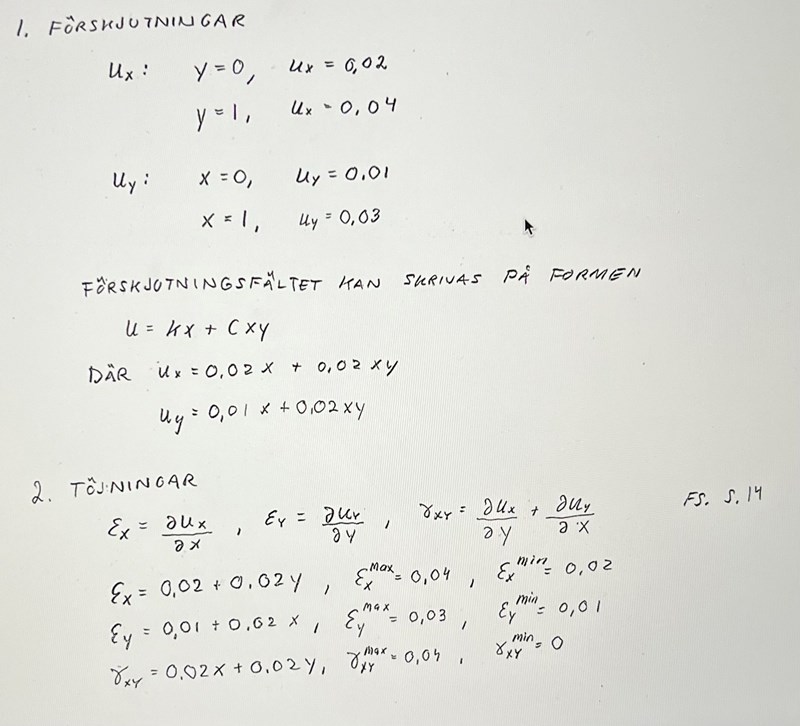 1. FÖRSKJUTNINGAR
ux : y = 0, ux = 0,02
y = 1, ux = 0,04
uy : x = 0, uy = 0,01
x = 1, uy = 0,03
FÖRSKJUTNINGSFÄLTET KAN SKRIVAS PÅ FORMEN
u = kx + Cxy
DÄR ux = 0,02x + 0,02xy
uy = 0,01x + 0,02xy
2. TÖJNINGAR FS. S. 14
εx = ∂ux/∂x , εy = ∂uy/∂y , γxy = ∂ux/∂y + ∂uy/∂x
εx = 0,02 + 0,02y , εx^max = 0,04 , εx^min = 0,02
εy = 0,01 + 0,02x , εy^max = 0,03 , εy^min = 0,01
γxy = 0,02x + 0,02y , γxy^max = 0,04 , γxy^min = 0